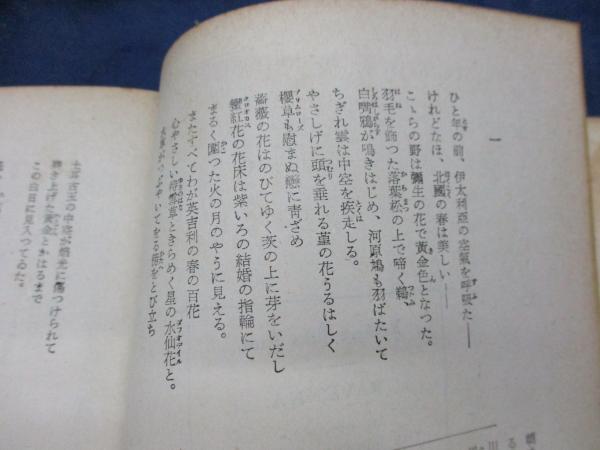 一
ひと年の前、伊太利亞の空氣を呼吸た――
けれどなほ、北國の春は美しい――
こゝらの野は彌生の花で黄金色となつた。
羽毛を飾つた落葉松の上で啼く鶫
白嘴鴉が鳴きはじめ、河原鳩も羽ばたいて
ちぎれ雲は中空を疾走しる。
やさしげに頭を垂れる菫の花うるはしく
櫻草も慰まぬ戀に靑ざめ
薔薇の花はのびてゆく茨の上に芽をいだし
蕃紅花の花床は紫いろの結婚の指輪にて
まるく圍つた火の月のやうに見える。
またすべてわが英吉利の春の百花
心やさしい
ときらめく星の水仙花と。
をとび立ち
の中空が曉光に傷つけられて
き上げた黄金とかはるまで
この白日に見入つてゐた。